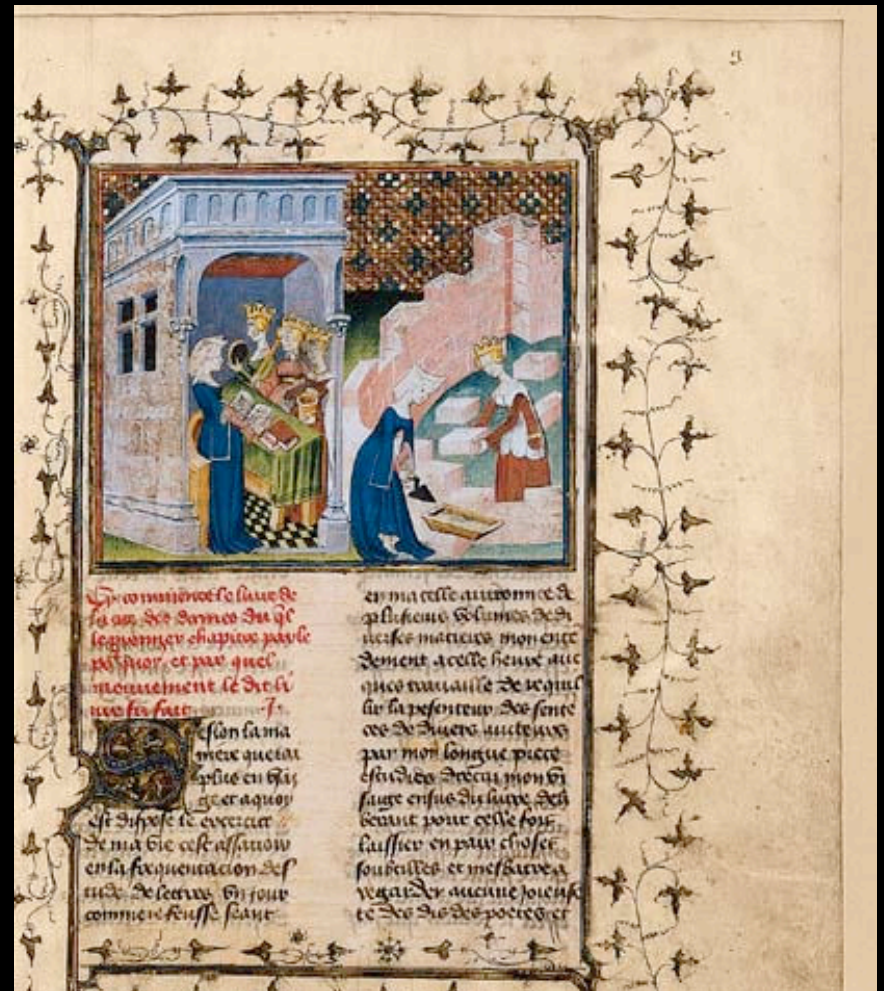 Cy commence le livre de
la cite des dames du ql
le premier chapitre parle
pour quoy et par quel
mouvement le dit li
vre fu fait. J.
Selon la ma
niere que iay
plus en usai
ge et a quoy
est dispose le exercice
de ma vie cest assavoir
en la frequentacion des
tude de lettres un jour
comme ie feusse seant
en ma celle anvironnee de
plusieurs volumes de di
verses matieres mon ente
dement a celle heure auc
ques travaille de recueil
lir la pesenteur des sente
ces de divers aucteurs
par moy longue piece
estudies drecay mon vi
saige ensus du livre deli
berant pour celle fois
laissier en paix choses
soubtilles et mesbatre a
regarder aucune joieuse
te des dis des poetes et